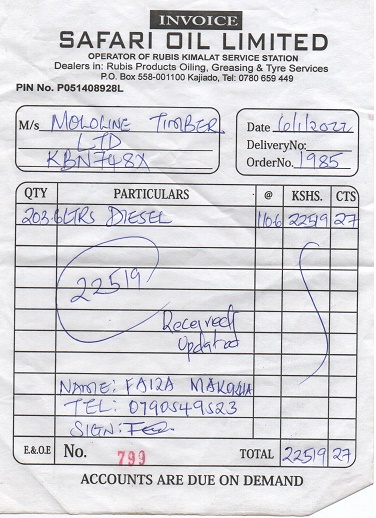 INVOICE
SAFARI OIL LIMITED
OPERATOR OF RUBIS KIMALAT SERVICE STATION
Dealers in: Rubis Products Oiling, Greasing & Tyre Services
P.O. Box 558-001100 Kajiado, Tel: 0780 659 449
PIN No. P051408928L
M/s MOLOLINE TIMBER
LTD
KBN748X
Date 6/1/2022
DeliveryNo:
OrderNo. 1985
QTY PARTICULARS @ KSHS. CTS
203.6 LTRS DIESEL 110.6 22519 27
22519
Received
Updated
NAME: FAIZA
TEL: 0790549523
SIGN:
E.&O.E No. 799 TOTAL 22519 27
ACCOUNTS ARE DUE ON DEMAND